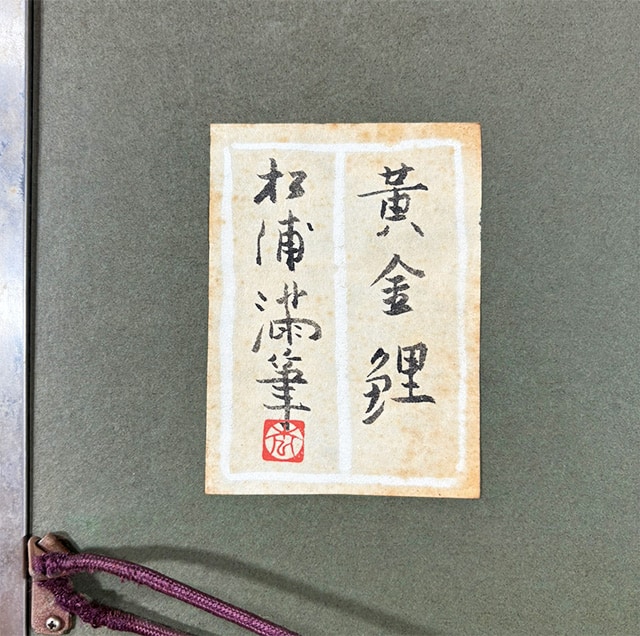 黃金鯉
松浦満筆